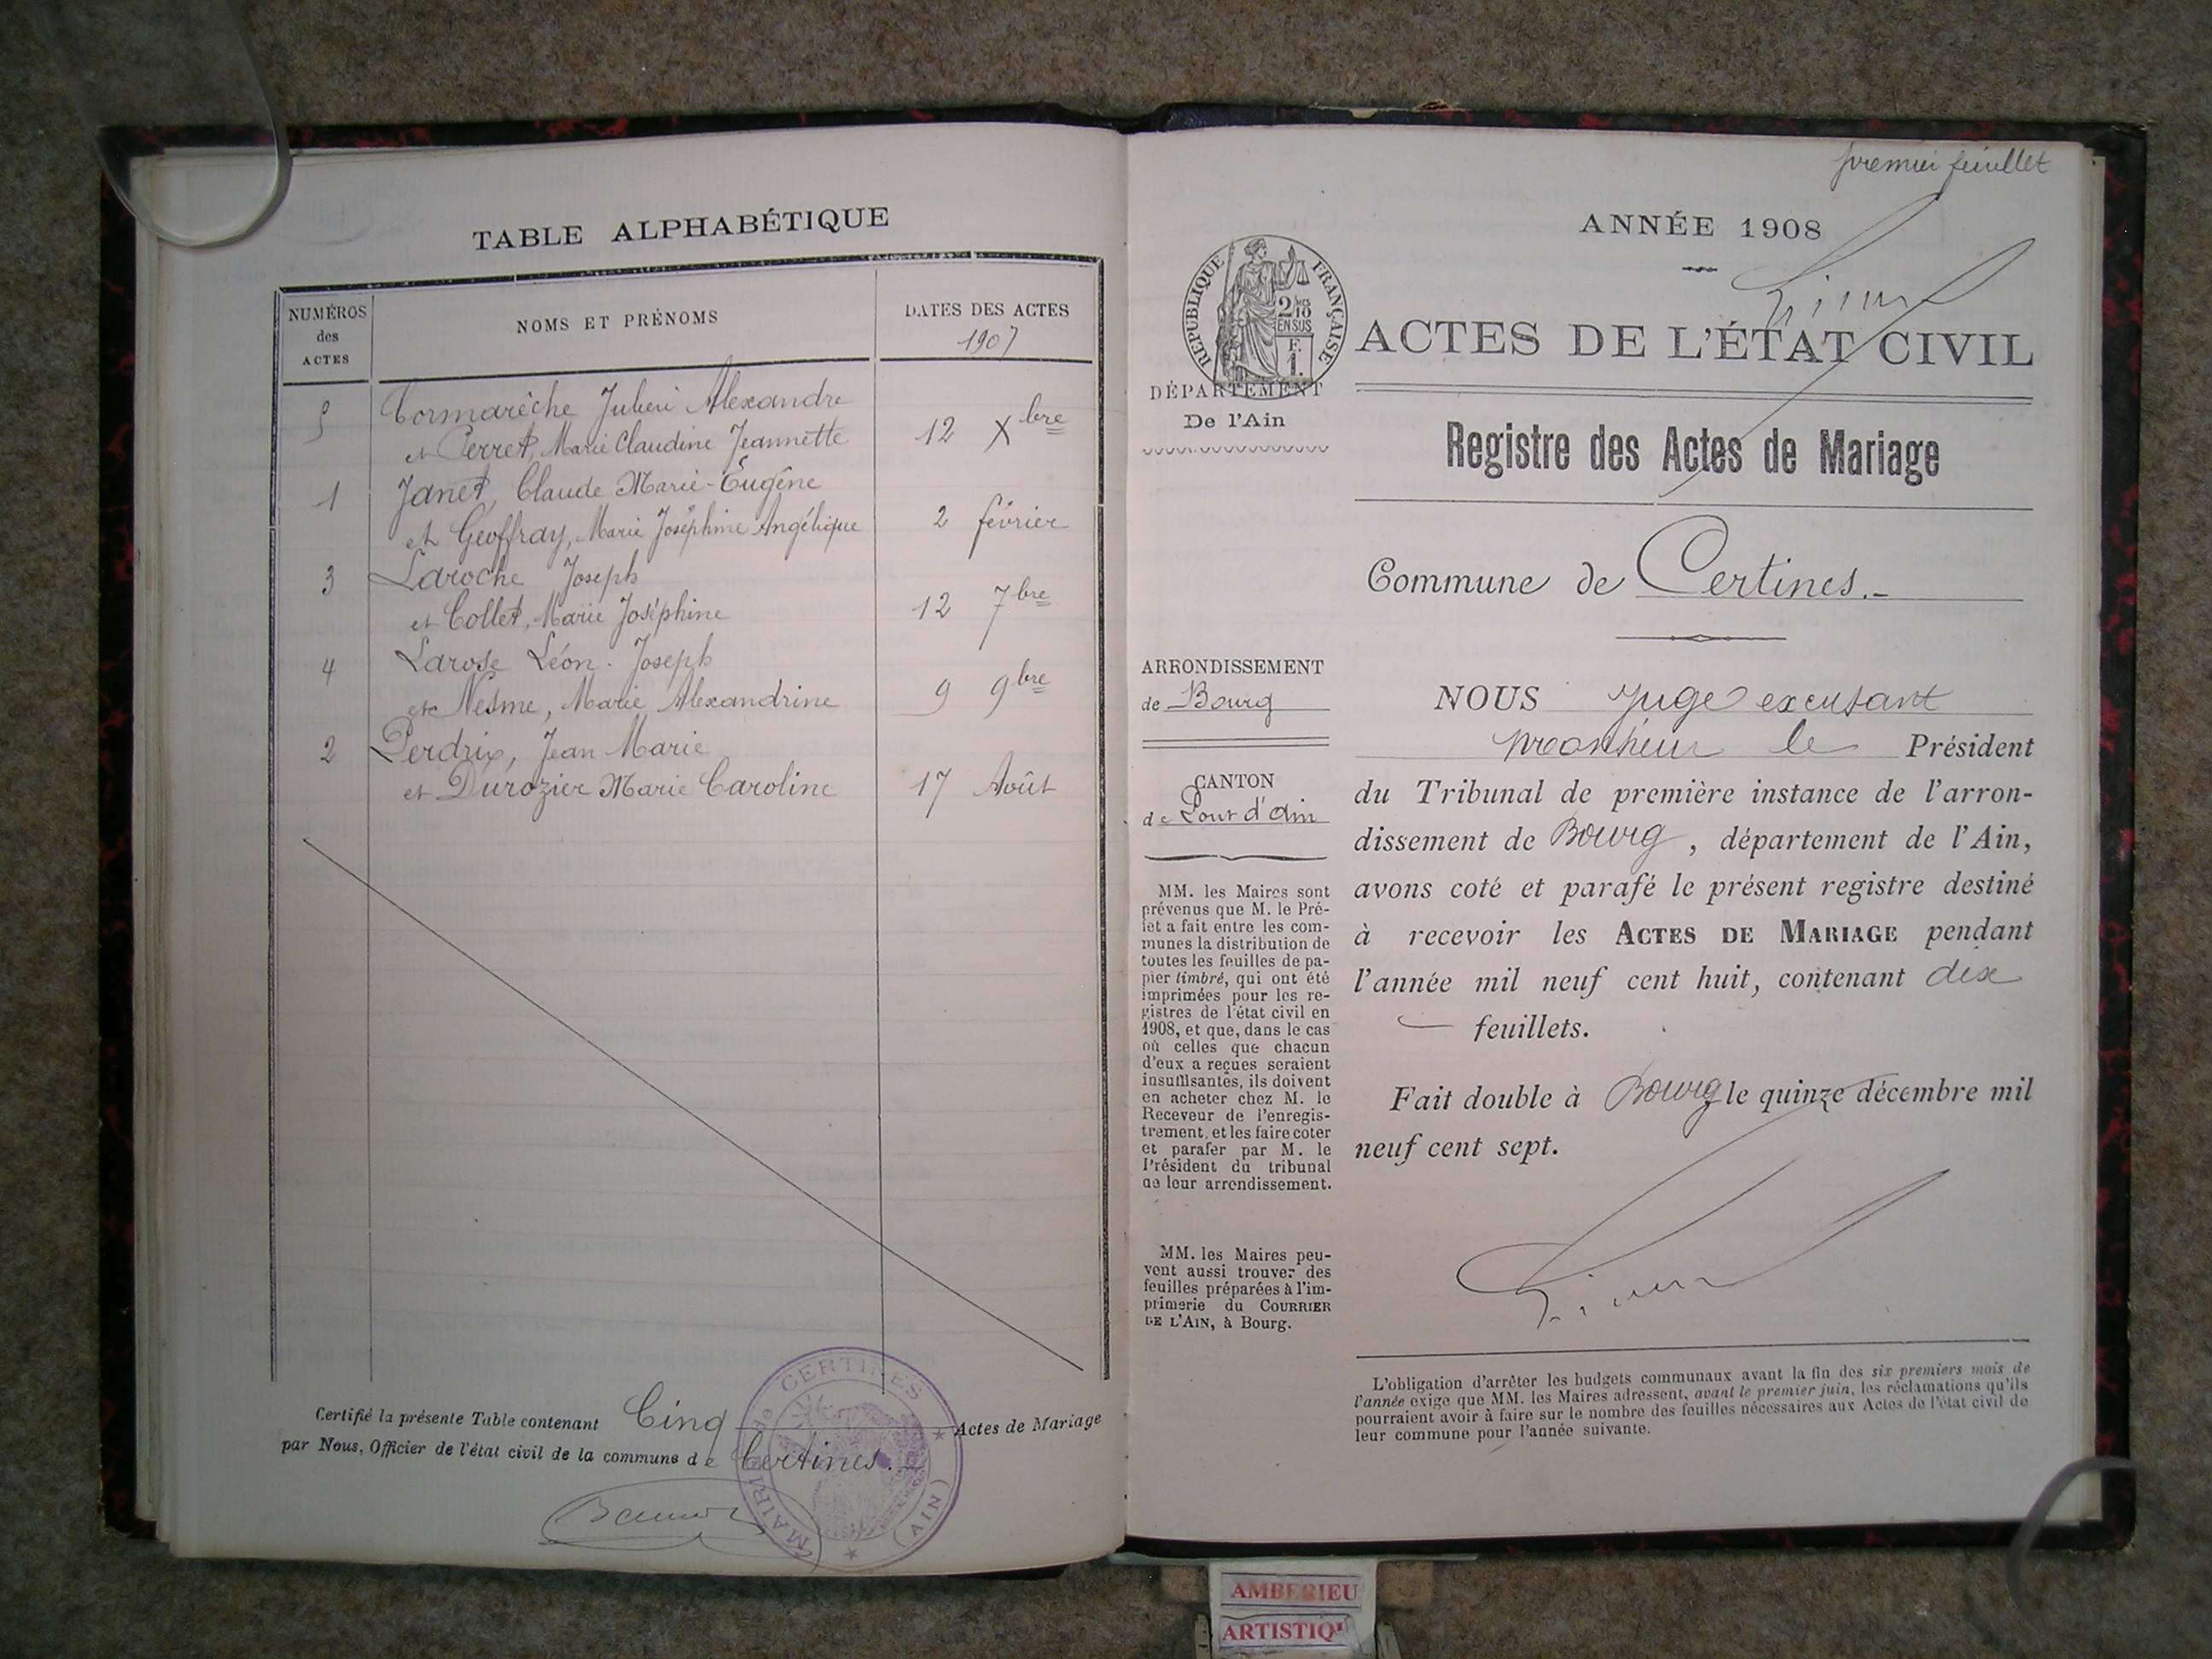 TABLE ALPHABÉTIQUE
NUMÉROS
des
ACTES
NOMS ET PRÉNOMS
DATES DES ACTES
1907
5 Cormarèche Julien Alexandre
et Perret, Marie Claudine Jeannette 12 Xbre
1 Janet, Claude Marie-Eugène
et Geoffray, Marie Joséphine Angélique 2 février
3 Laroche Joseph
et Collet, Marie Joséphine 12 7bre
4 Larose Léon. Joseph
et Nesme, Marie Alexandrine 9 9bre
2 Perdrix, Jean Marie
et Durozier Marie Caroline 17 Août
Certifié la présente Table contenant Cinq Actes de Mariage
par Nous, Officier de l'état civil de la commune de Certines.
MAIRIE de CERTINES
(AIN)
premier feuillet
ANNÉE 1908
RÉPUBLIQUE FRANÇAISE
2/10
EN SUS
F.
1.
ACTES DE L'ÉTAT CIVIL
DÉPARTEMENT
De l'Ain
Registre des Actes de Mariage
Commune de Certines.-
ARRONDISSEMENT
de Bourg
CANTON
de Pont d'Ain
MM. les Maires sont
prévenus que M. le Pré-
fet a fait entre les com-
munes la distribution de
toutes les feuilles de pa-
pier timbré, qui ont été
imprimées pour les re-
gistres de l'état civil en
1908, et que, dans le cas
où celles que chacun
d'eux a reçues seraient
insuffisantes, ils doivent
en acheter chez M. le
Receveur de l'enregis-
trement, et les faire coter
et parafer par M. le
Président du tribunal
de leur arrondissement.
MM. les Maires peu-
vent aussi trouver des
feuilles préparées à l'im-
primerie du COURRIER
DE L'AIN, à Bourg.
NOUS Juge excusant
monsieur le Président
du Tribunal de première instance de l'arron-
dissement de Bourg, département de l'Ain,
avons coté et parafé le présent registre destiné
à recevoir les ACTES DE MARIAGE pendant
l'année mil neuf cent huit, contenant dix
feuillets.
Fait double à Bourg le quinze décembre mil
neuf cent sept.
L'obligation d'arrêter les budgets communaux avant la fin des six premiers mois de
l'année exige que MM. les Maires adressent, avant le premier juin, les réclamations qu'ils
pourraient avoir à faire sur le nombre des feuilles nécessaires aux Actes de l'état civil de
leur commune pour l'année suivante.
AMBERIEU
ARTISTIQ